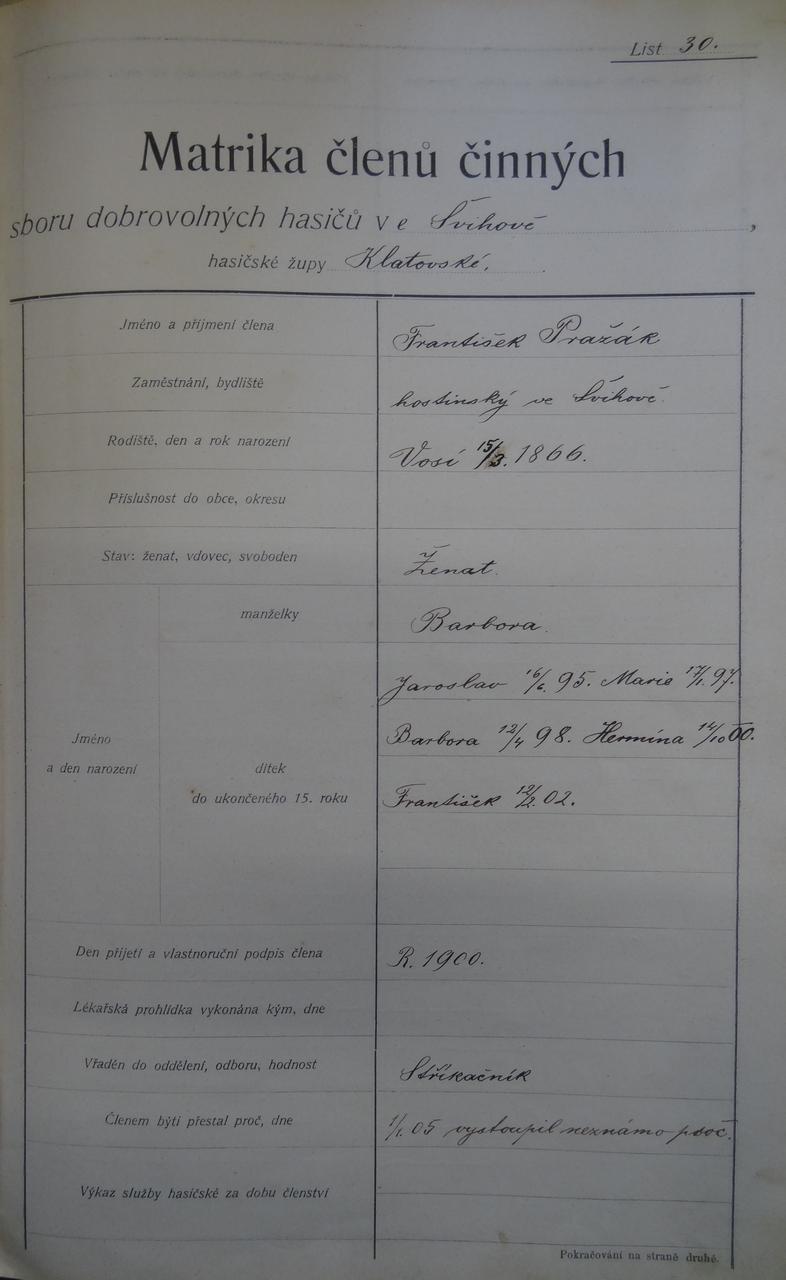 List 30.
Matrika členů činných
sboru dobrovolných hasičů v e Švihově,
hasičské župy Klatovské.
Jméno a příjmení člena František Pražák
Zaměstnání, bydliště hostinský ve Švihově.
Rodiště, den a rok narození Vosí 15/3. 1866.
Příslušnost do obce, okresu
Stav: ženat, vdovec, svoboden Ženat.
manželky Barbora.
Jaroslav 16/6. 95. Marie 17/1. 97.
Jméno Barbora 12/4 98. Hermína 14/10 00.
a den narození dítek
do ukončeného 15. roku František 12/2. 02.
Den přijetí a vlastnoruční podpis člena R. 1900.
Lékařská prohlídka vykonána kým, dne
Vřaděn do oddělení, odboru, hodnost Stříkačník
Členem býti přestal proč, dne 1/1. 05 vystoupil neznámo proč.
Výkaz služby hasičské za dobu členství
Pokračování na straně druhé.